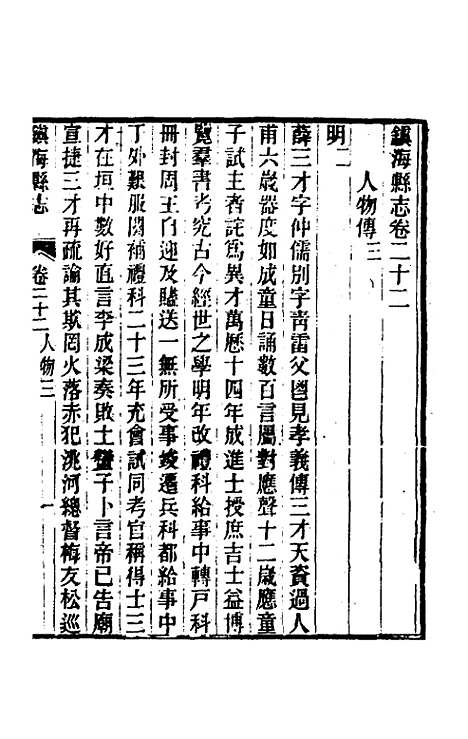 鎮海縣志卷二十二
人物傳三
明二
薛三才字仲儒别字靑雷父見孝義傳三才天資過人
甫六歲器度如成童日誦數百言屬對應聲十二歲應童
子試主者詫爲異才萬曆十四年成進士授庶吉士益博
覽羣書考究古今經世之學明年改禮科給事中轉戸科
冊封周王自迎及贐送一無所受事竣遷兵科都給事中
丁外艱服闋補禮科二十三年充會試同考官稱得士三
才在垣中數好直言李成梁奏敗土蠻子卜言帝已告廟
宣捷三才再疏論其欺罔火落赤犯洮河總督梅友松巡
鎮海縣志
卷二十二人物三
一